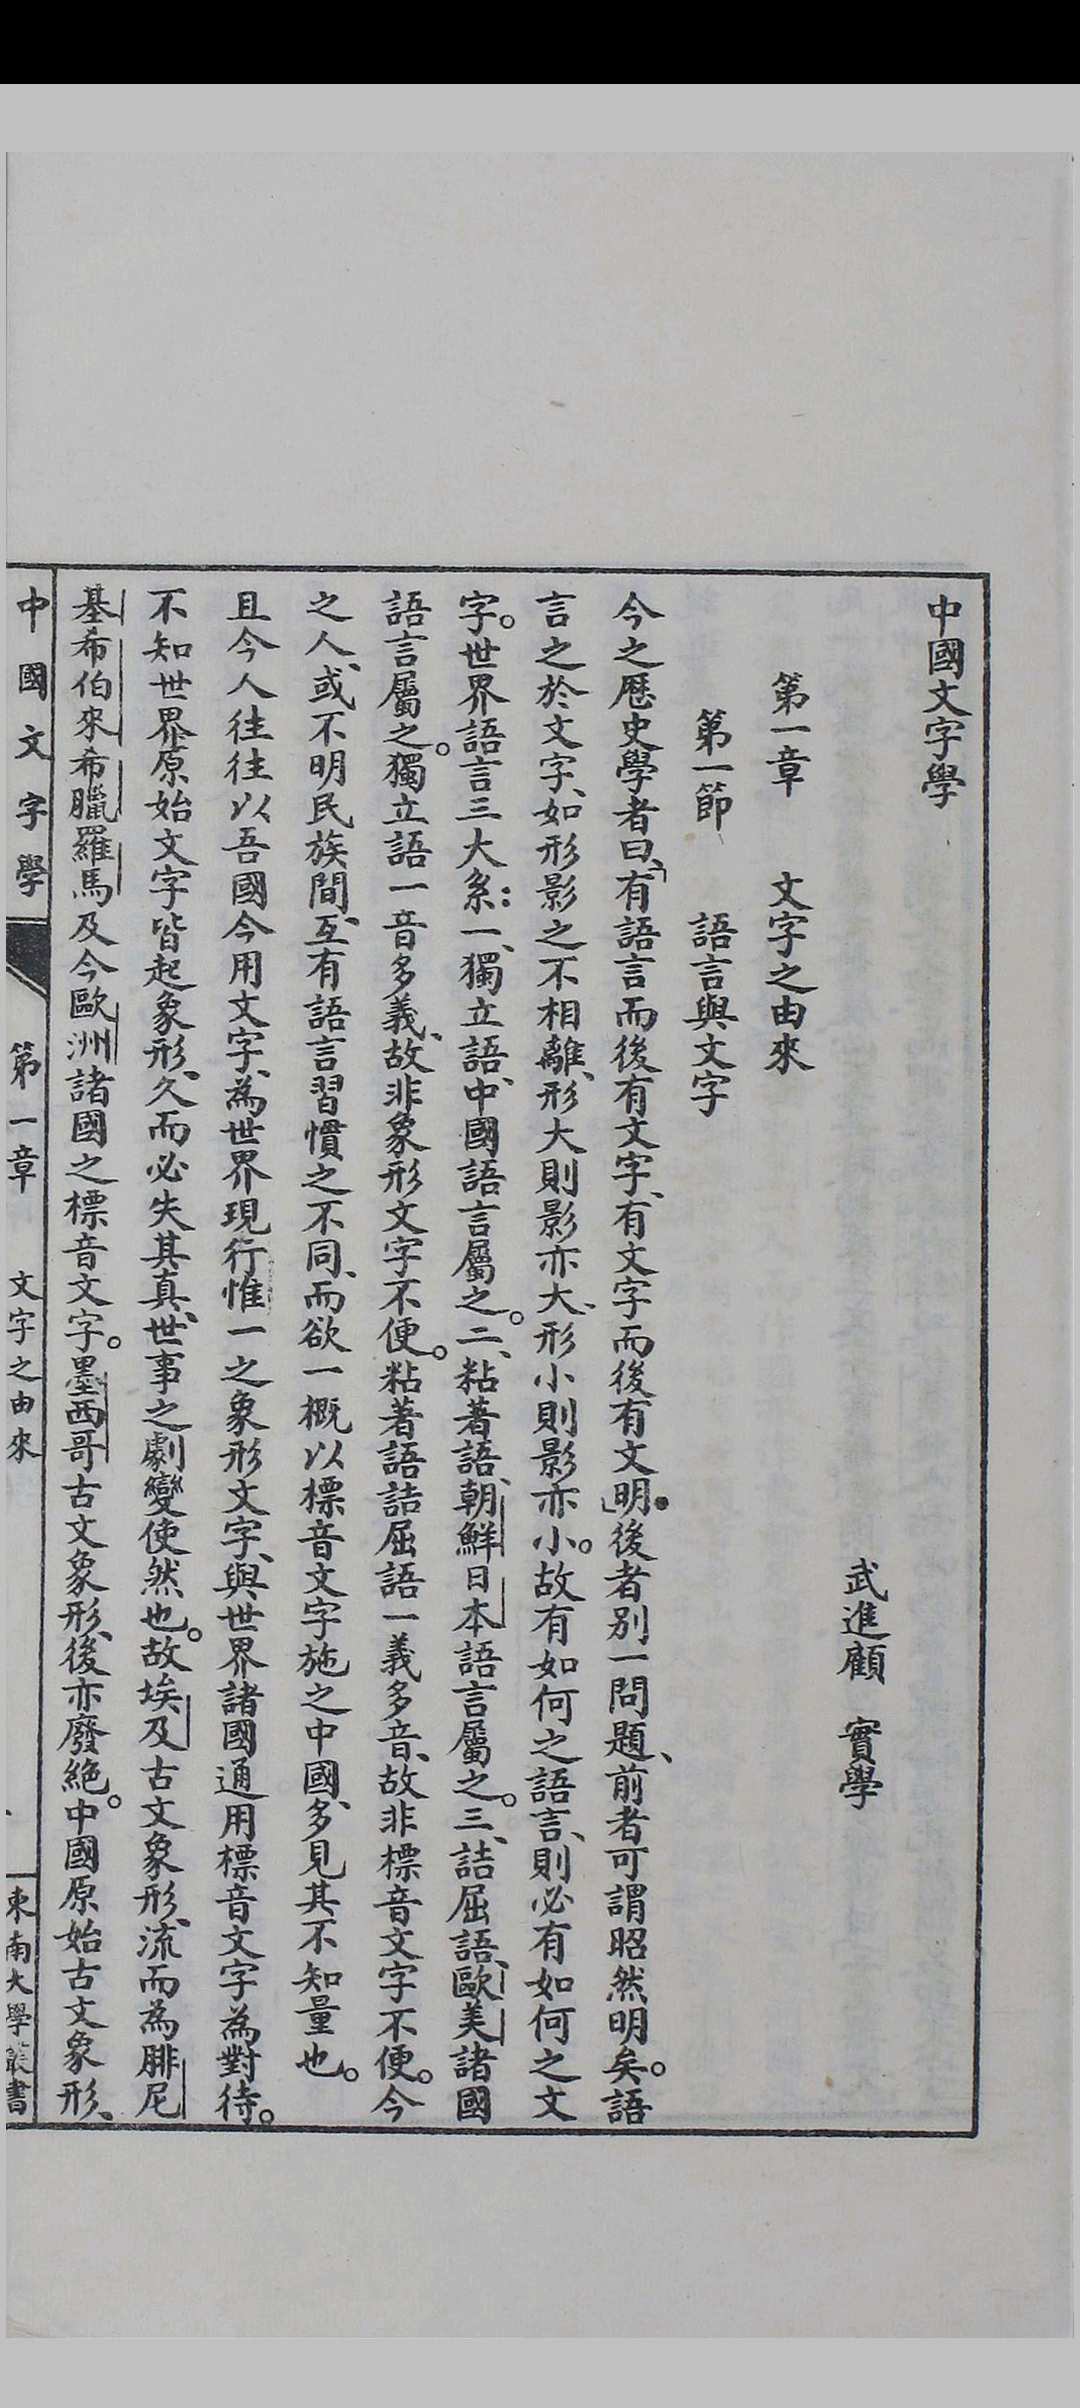 中國文字學
武進顧 實學
第一章 文字之由來
第一節 語言與文字
今之歷史學者曰、「有語言而後有文字、有文字而後有文明」。後者別一問題、前者可謂昭然明矣。語
言之於文字、如形影之不相離、形大則影亦大、形小則影亦小。故有如何之語言、則必有如何之文
字。世界語言三大系：一、獨立語、中國語言屬之。二、粘著語、朝鮮日本語言屬之。三、詰屈語、歐美諸國
語言屬之。獨立語一音多義、故非象形文字不便。粘著語詰屈語一義多音、故非標音文字不便。今
之人、或不明民族間、互有語言習慣之不同、而欲一概以標音文字施之中國、多見其不知量也。
且今人往往以吾國今用文字、為世界現行惟一之象形文字、與世界諸國通用標音文字為對待。
不知世界原始文字皆起象形、久而必失其真、世事之劇變使然也。故埃及古文象形、流而為腓尼
基希伯來希臘羅馬及今歐洲諸國之標音文字。墨西哥古文象形、後亦廢絕。中國原始古文象形、
中國文字學 第一章 文字之由來 東南大學叢書